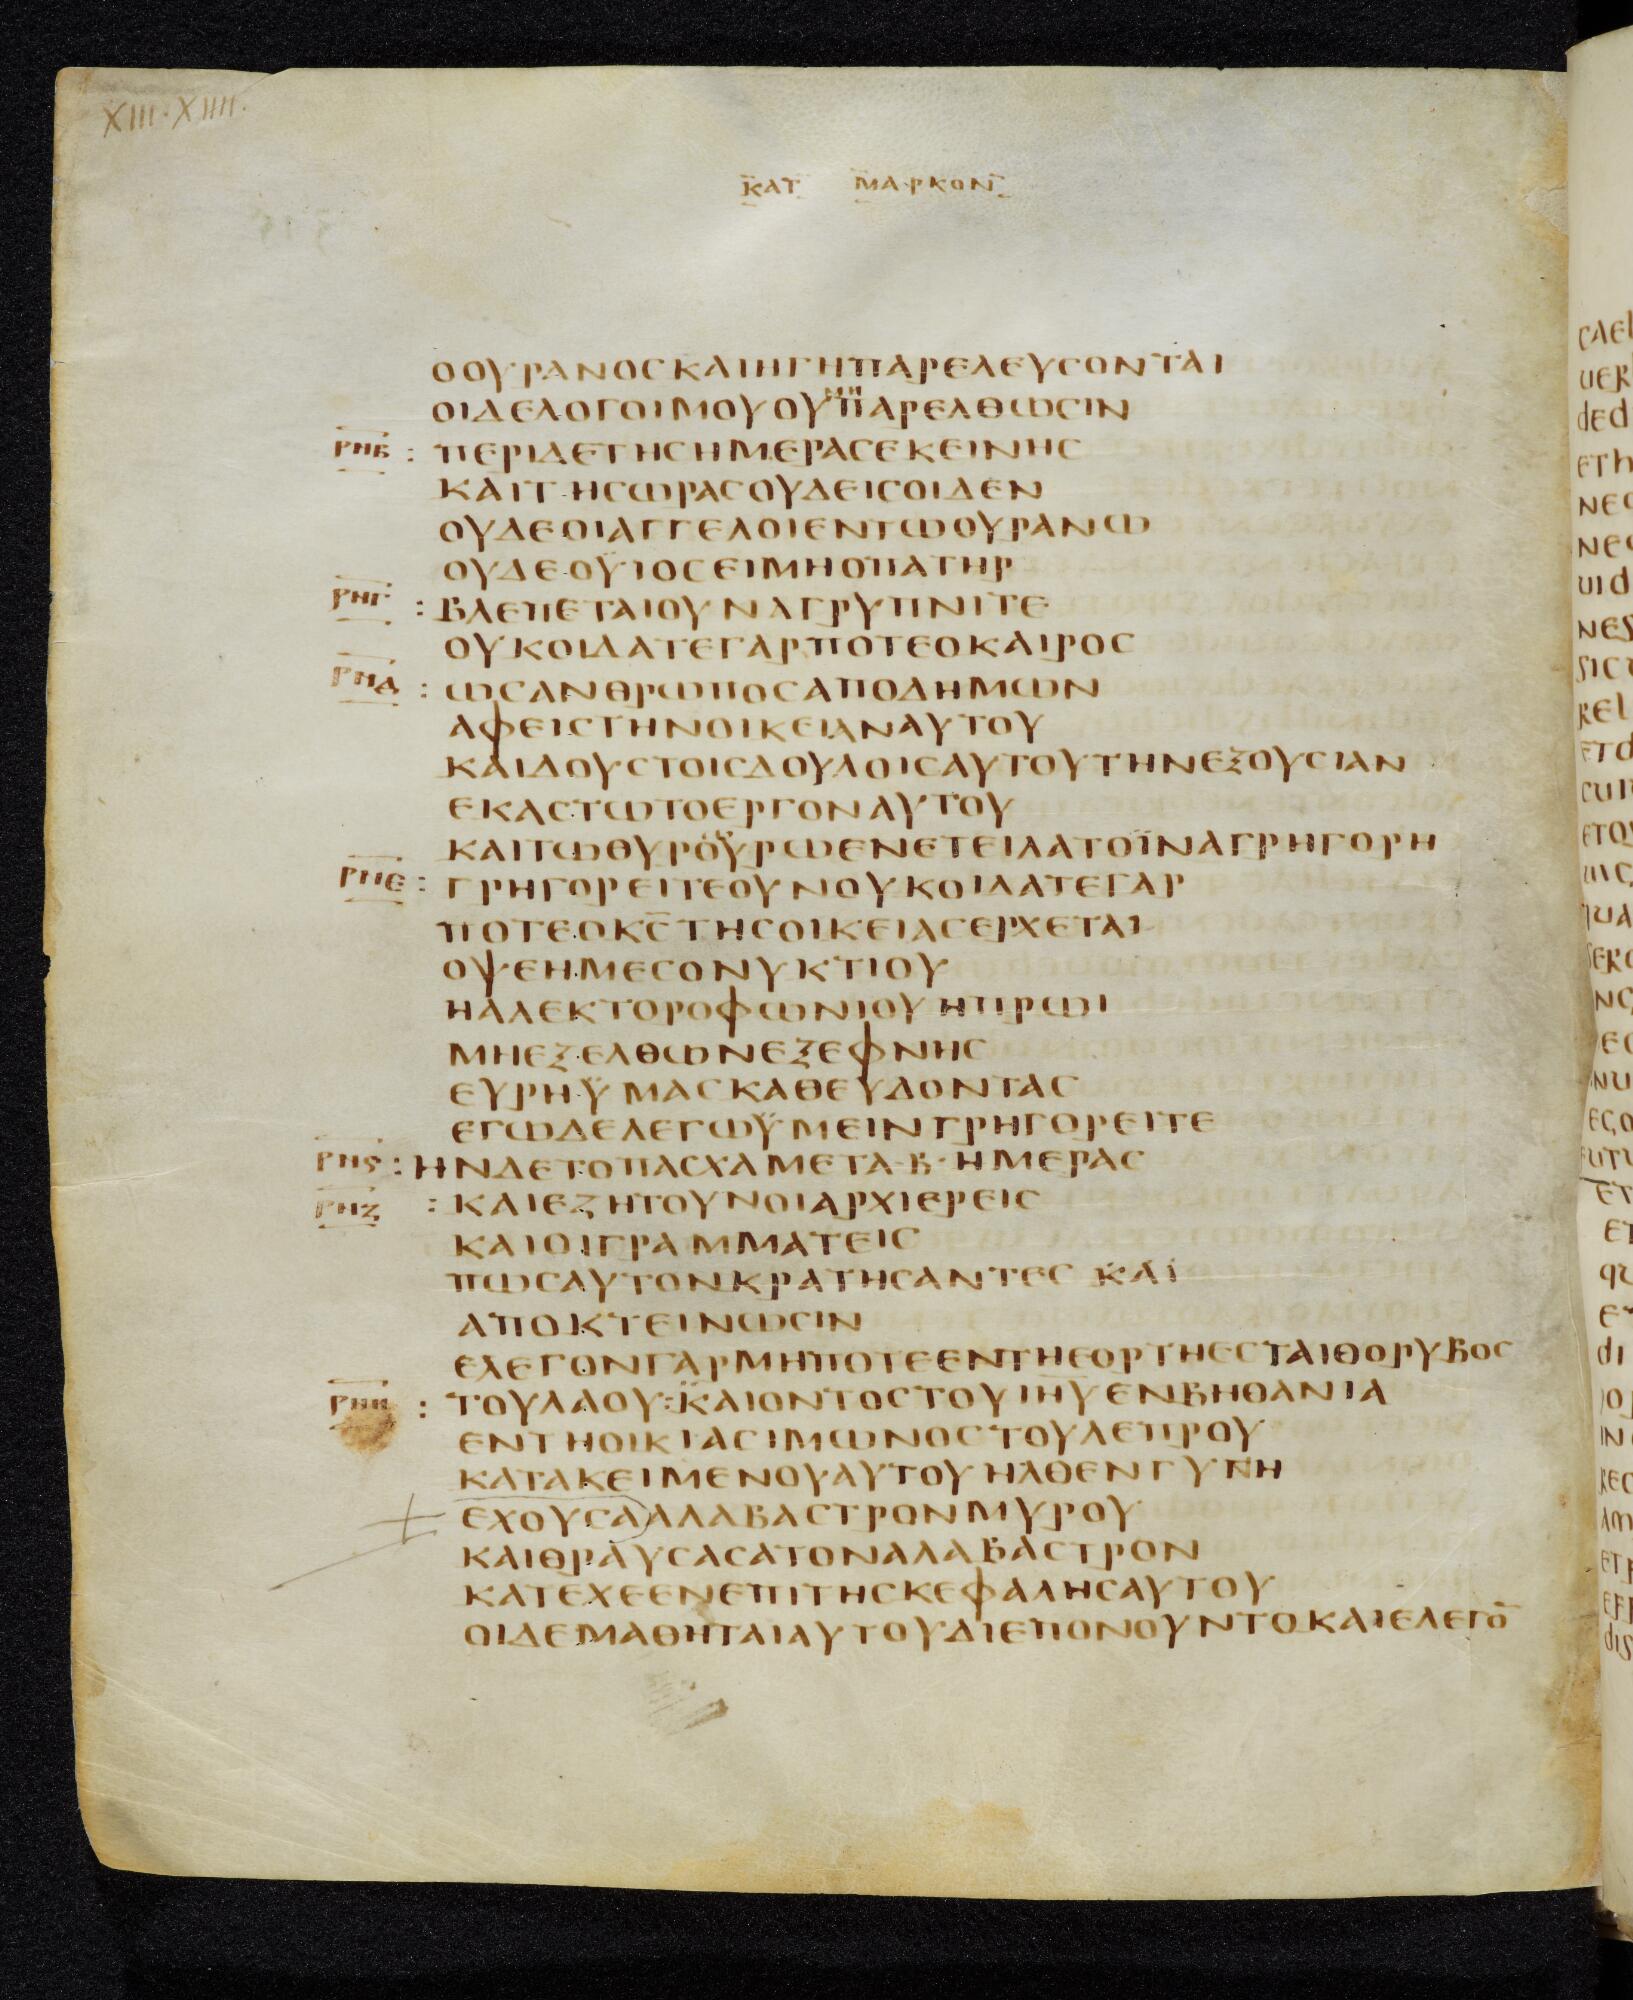 XIII·XIIII·
ΚΑΤ ΜΑΡΚΟΝ
ΟΟΥΡΑΝΟСΚΑΙΗΓΗΠΑΡΕΛΕΥСΟΝΤΑΙ
ΟΙΔΕΛΟΓΟΙΜΟΥΟΥΜΗΠΑΡΕΛΘΩСΙΝ
ΡΗΒ : ΠΕΡΙΔΕΤΗСΗΜΕΡΑСΕΚΕΙΝΗС
ΚΑΙΤΗСΩΡΑСΟΥΔΕΙСΟΙΔΕΝ
ΟΥΔΕΟΙΑΓΓΕΛΟΙΕΝΤΩΟΥΡΑΝΩ
ΟΥΔΕΟΥΙΟСΕΙΜΗΟΠΑΤΗΡ
ΡΗΓ : ΒΛΕΠΕΤΑΙΟΥΝΑΓΡΥΠΝΙΤΕ
ΟΥΚΟΙΔΑΤΕΓΑΡΠΟΤΕΟΚΑΙΡΟС
ΡΗΔ : ΩСΑΝΘΡΩΠΟСΑΠΟΔΗΜΩΝ
ΑΦΕΙСΤΗΝΟΙΚΕΙΑΝΑΥΤΟΥ
ΚΑΙΔΟΥСΤΟΙСΔΟΥΛΟΙСΑΥΤΟΥΤΗΝΕΞΟΥСΙΑΝ
ΕΚΑСΤΩΤΟΕΡΓΟΝΑΥΤΟΥ
ΚΑΙΤΩΘΥΡΟΥΡΩΕΝΕΤΕΙΛΑΤΟΪΝΑΓΡΗΓΟΡΗ
ΡΗΕ : ΓΡΗΓΟΡΕΙΤΕΟΥΝΟΥΚΟΙΔΑΤΕΓΑΡ
ΠΟΤΕΟΚС̅ΤΗСΟΙΚΕΙΑСΕΡΧΕΤΑΙ
ΟΨΕΗΜΕСΟΝΥΚΤΙΟΥ
ΗΑΛΕΚΤΟΡΟΦΩΝΙΟΥΗΠΡΩΙ
ΜΗΕΞΕΛΘΩΝΕΞΕΦΝΗС
ΕΥΡΗΫΜΑСΚΑΘΕΥΔΟΝΤΑС
ΕΓΩΔΕΛΕΓΩΫΜΕΙΝΓΡΗΓΟΡΕΙΤΕ
ΡΗϚ : ΗΝΔΕΤΟΠΑСΧΑΜΕΤΑ·Β·ΗΜΕΡΑС
ΡΗΖ : ΚΑΙΕΖΗΤΟΥΝΟΙΑΡΧΙΕΡΕΙС
ΚΑΙΟΙΓΡΑΜΜΑΤΕΙС
ΠΩСΑΥΤΟΝΚΡΑΤΗСΑΝΤΕС ΚΑΙ
ΑΠΟΚΤΕΙΝΩСΙΝ
ΕΛΕΓΟΝΓΑΡΜΗΠΟΤΕΕΝΤΗΕΟΡΤΗΕСΤΑΙΘΟΡΥΒΟС
ΡΗΗ : ΤΟΥΛΑΟΥ:ΚΑΙΟΝΤΟСΤΟΥΙΗΥ̅ΕΝΒΗΘΑΝΙΑ
ΕΝΤΗΟΙΚΙΑСΙΜΩΝΟСΤΟΥΛΕΠΡΟΥ
ΚΑΤΑΚΕΙΜΕΝΟΥΑΥΤΟΥΗΛΘΕΝΓΥΝΗ
ΕΧΟΥСΑΑΛΑΒΑСΤΡΟΝΜΥΡΟΥ
ΚΑΙΘΡΑΥСΑСΑΤΟΝΑΛΑΒΑСΤΡΟΝ
ΚΑΤΕΧΕΕΝΕΠΙΤΗСΚΕΦΑΛΗСΑΥΤΟΥ
ΟΙΔΕΜΑΘΗΤΑΙΑΥΤΟΥΔΙΕΠΟΝΟΥΝΤΟΚΑΙΕΛΕΓΟ̅